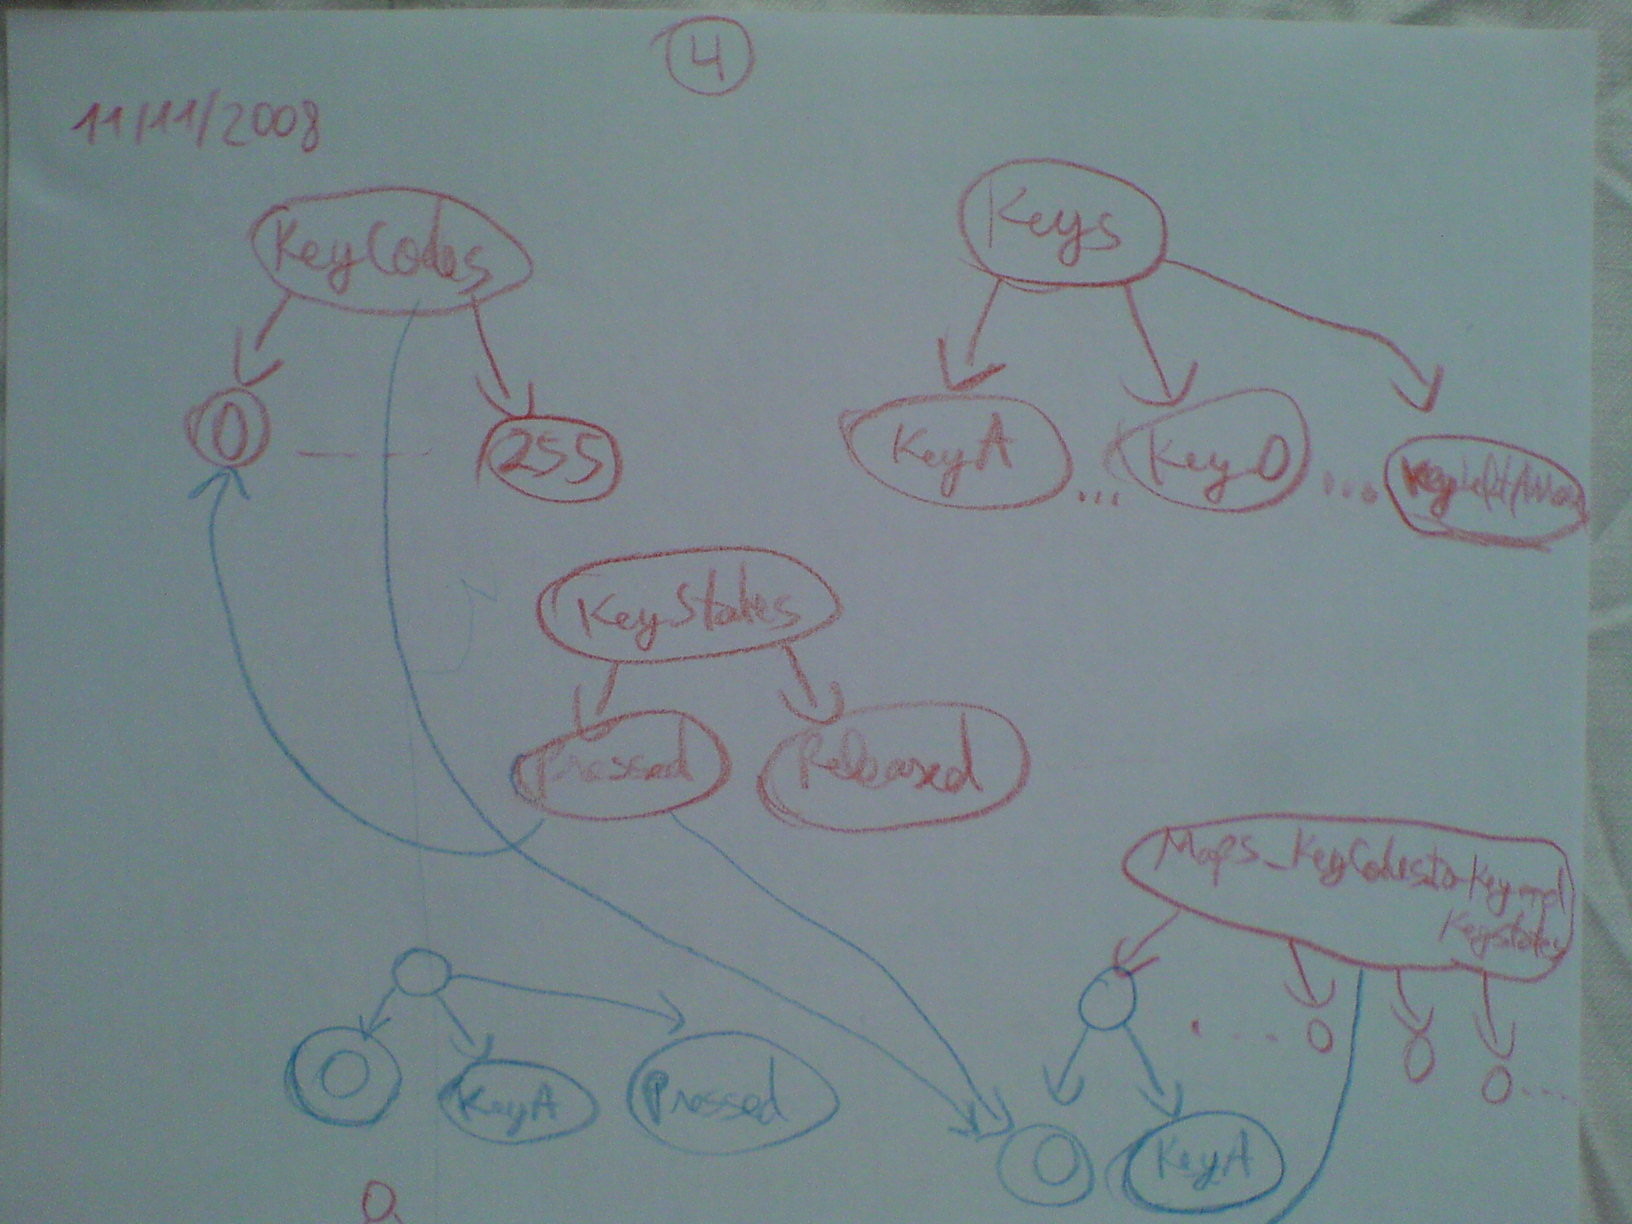 4
11/11/2008
KeyCodes
Keys
0
255
KeyA
...
KeyO
...
KeyLeftArrow
KeyStates
Pressed
Released
Maps_KeyCodesto Key and
KeyStates
0
KeyA
Pressed
0
KeyA